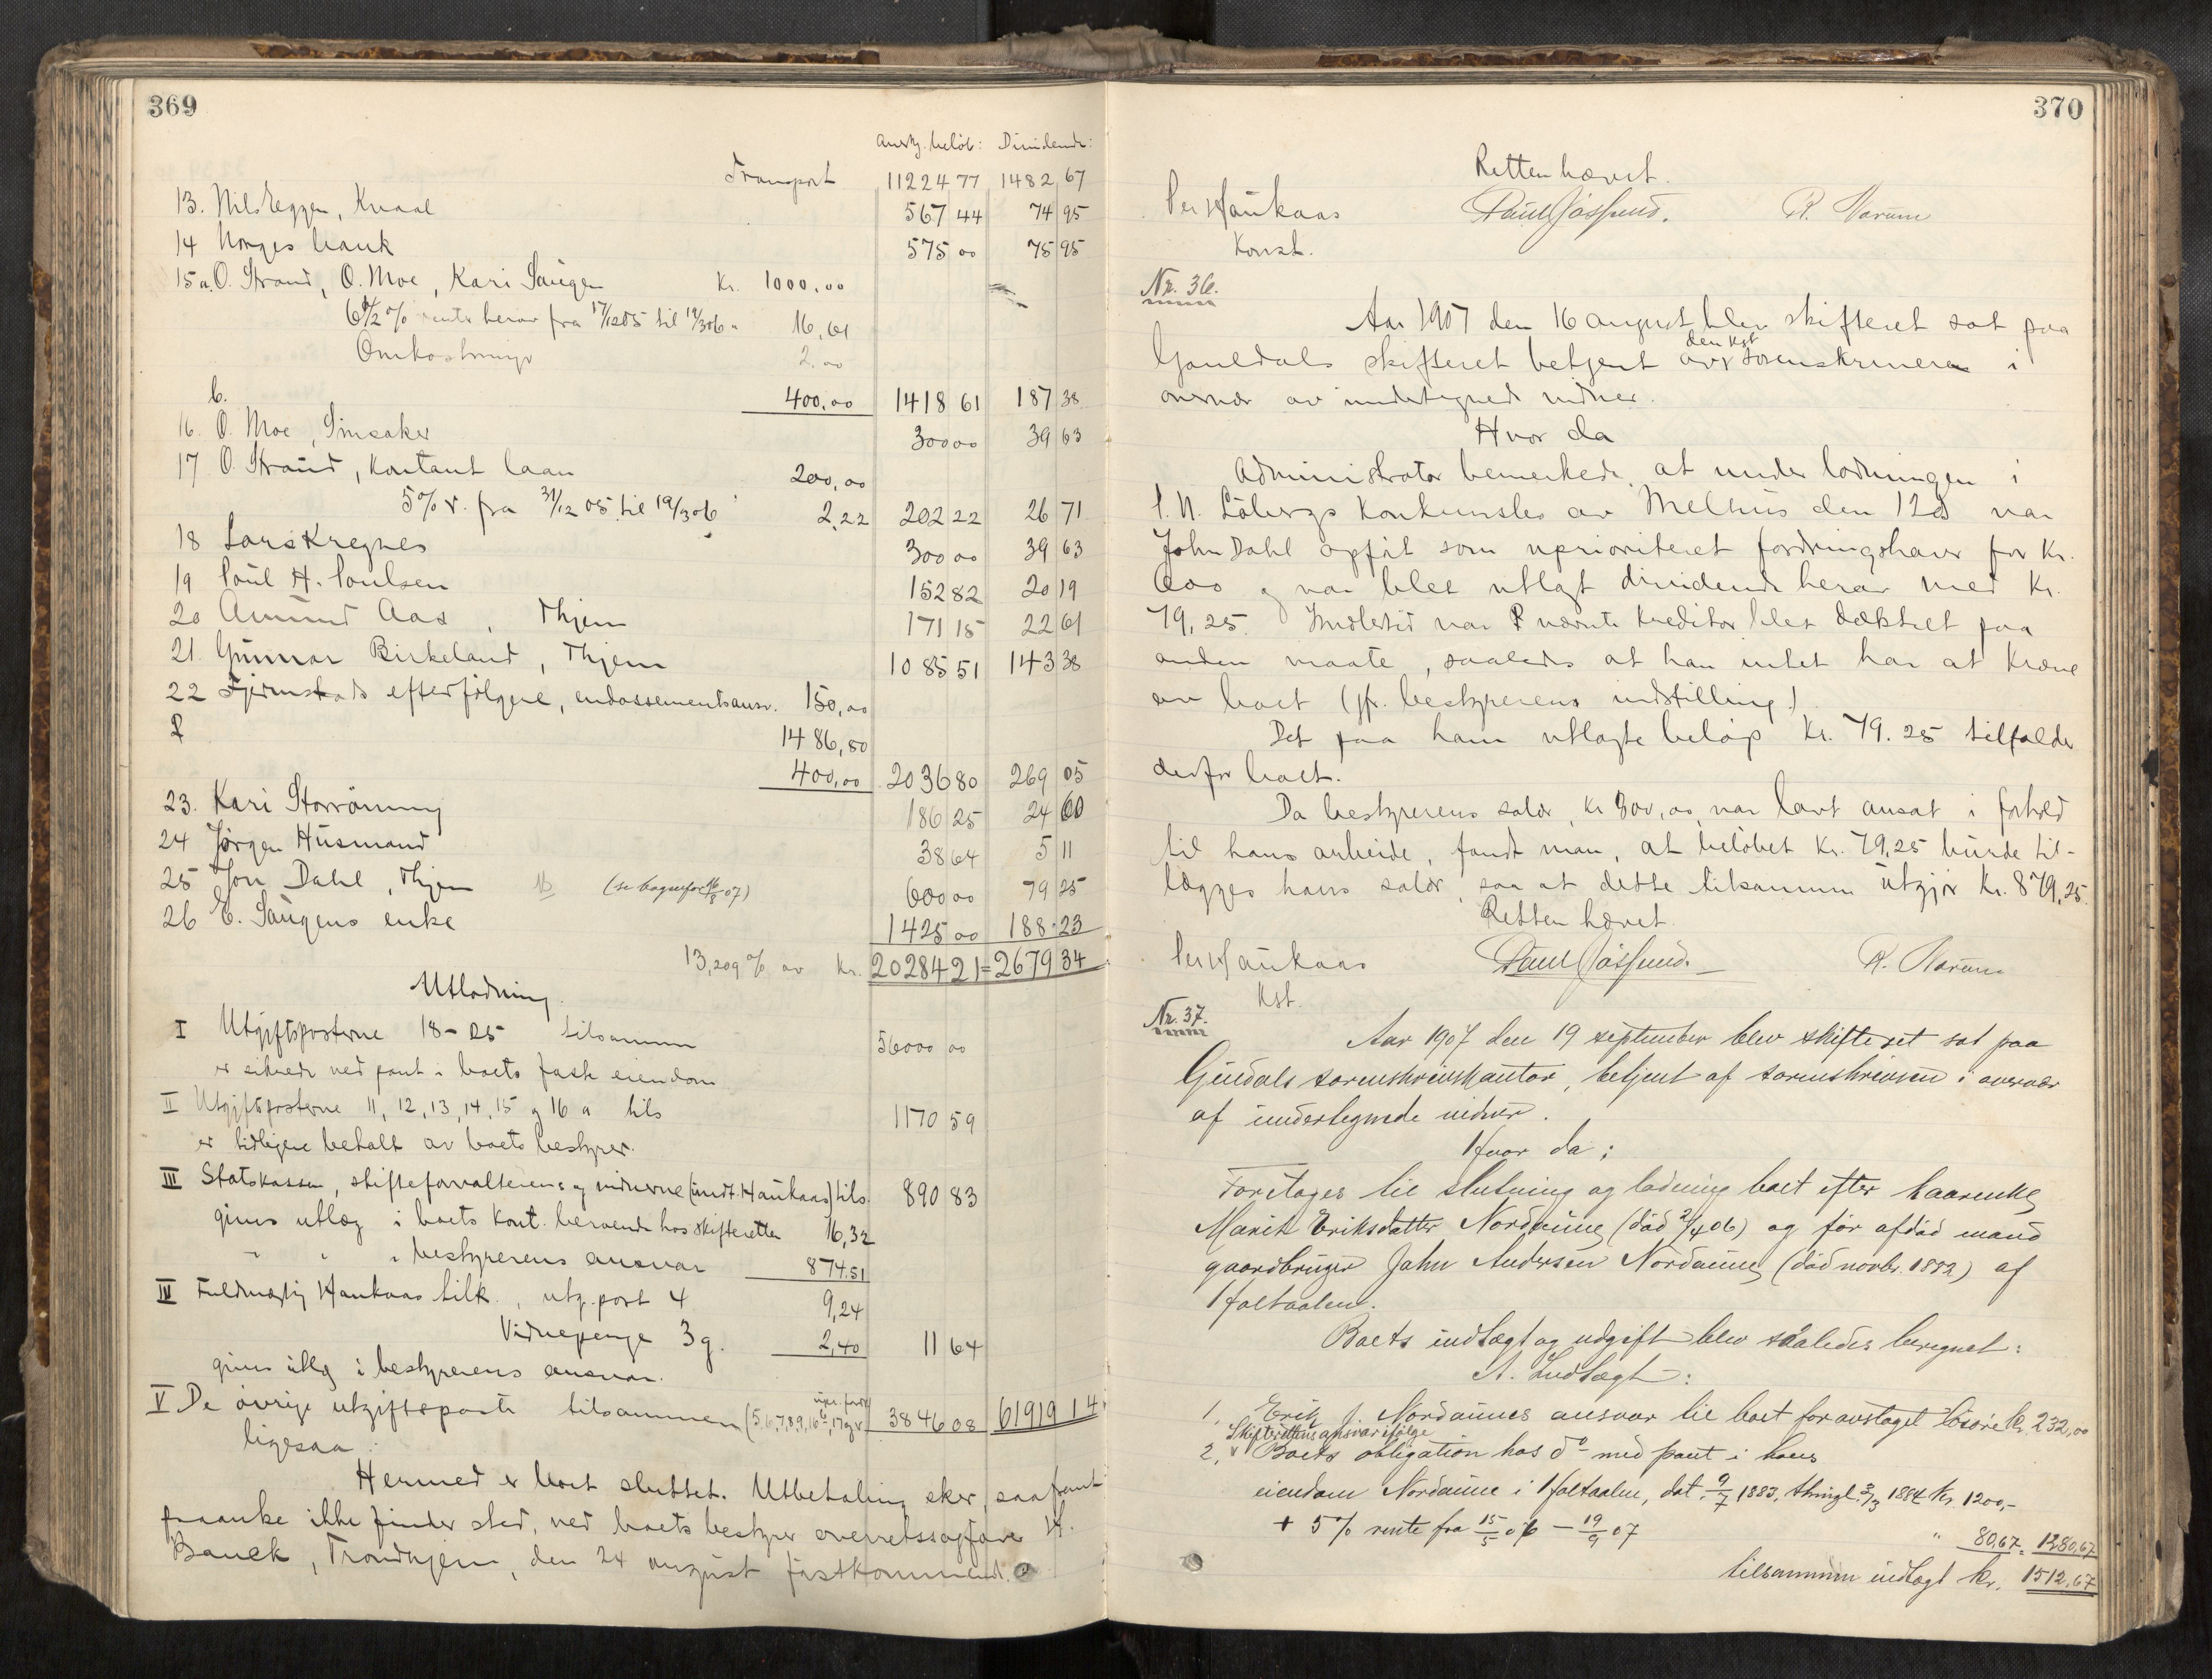 369
Anerkj. beløb: Dividende:
Transport 11224 77 1482,67
13. Nils Leggen, Kvaal 567 44 74 95
14 Norges bank 575 00 75 95
15 a. O. Strand, O. Moe, Kari Saugen Kr. 1000.00
6 1/2 % rente herav fra 17/12 05 til 19/3 06 " 16,61
Omkostninger 2.00
b. 400,00 1418 61 187 38
16. O. Moe, Simsaker 300 00 39 63
17 O. Strand, Kontant laan 200,00
5 % r. fra 31/12 05 til 19/3 06 2,22 202 22 26 71
18 Lars Kregnes 300 00 39 63
19 Poul H. Poulsen 152 82 20 19
20 Amund Aas, Thjem 171 15 22 61
21. Gunnar Birkeland, Thjem 1085 51 143 38
22 Fjermstads efterfølgere, endossementsansv. 150,00
1486,80
400,00 2036 80 269 05
23. Kari Storrønning 186 25 24 60
24 Jørgen Husmand 38 64 5 11
25 Jon Dahl, Thjem (se bagenfor 16/8 07) 600 00 79 25
26 E. Saugens enke 1425 00 188.23
13,209 % av Kr. 20284 21 = 2679 34
Utlodning.
I Utgiftsposterne 18 - 25 tilsammen 56000 00
er sikrede ved pant i boets faste eiendom
II Utgiftsposterne 11, 12, 13, 14, 15 og 16 a tils 1170 59
er tidligere betalt av boets bestyrer.
III Statskassen, skifteforvalteren og vidnerne (undt. Haukaas) tils. 890 83
gives utlæg i boets kont. beroende hos skifteretten 16,32
" " i bestyrerens ansvar 874.51
IV Fuldmægtig Haukaas tilk., utg. post 4 9,24
Vidnepenge 3 g. 2,40 11 64
gives utlæg i bestyrerens ansvar.
V De øvrige utgiftsposter tilsammen (5,6,7,8,9,16 b, 17 og 3846 08 61919 14
ligesaa.
Hermed er boet sluttet. Utbetaling sker, saafremt
paaanke ikke finder sted, ved boets bestyrer overretssagfører H.
Bauck, Trondhjem, den 24 august førstkommende.
370
Retten hævet.
Per Haukaas Paul Jøssund. R. Narum
Konst.
Nr. 36.
Aar 1907 den 16 august blev skifteret sat paa
Gauldals skifteret betjent av den kst sorenskriver i
overvær av undertegnede vidner.
Hvor da
Administrator bemerkede, at under lodningen i
P. N. Løbergs konkursbo av Melhus den 12 ds var
John Dahl opført som uprioriteret fordringshaver for Kr.
600 og var blet utlagt dividende herav med Kr.
79,25. Imidlertid var nævnte kreditor blet dækket paa
anden maate, saaledes at han intet har at kræve
av boet (jfr. bestyrerens indstilling).
Det paa ham utlagte beløp Kr. 79.25 tilfalder
derfor boet.
Da bestyrerens salær, Kr 800,00, var lavt ansat i forhold
til hans arbeide, fandt man, at beløbet Kr. 79,25 burde til-
lægges hans salær, saa at dette tilsammen utgjør Kr. 879,25.
Retten hævet.
Per Haukaas Paul Jøssund. R. Narum
Kst.
Nr. 37.
Aar 1907 den 19 september blev skifteret sat paa
Guldals sorenskriverkontor, betjent af sorenskriveren i overvær
af undertegnede vidner.
Hvor da:
Foretages til slutning og lodning boet efter kaarenke
Marit Eriksdatter Nordaune (død 2/4 06) og før afdød mand
gaardbruger John Andersen Nordaune (død novbr. 1882) af
Holtaalen.
Boets indtægt og udgift blev saaledes beregnet:
A. Indtægt:
1. Erik J. Nordaunes ansvar til boet for avstaaget løsøre kr. 232,00
Skifterettens ansvar ifølge
2. Boets obligation hos do med pant i hans
eiendom Nordaune i Holtaalen, dat. 9/7 1883, thingl. 3/3 1884 kr. 1200,-
+ 5 % rente fra 15/5 06 - 19/9 07
" 80,67 = 1280,67
tilsammen indtægt kr. 1512,67